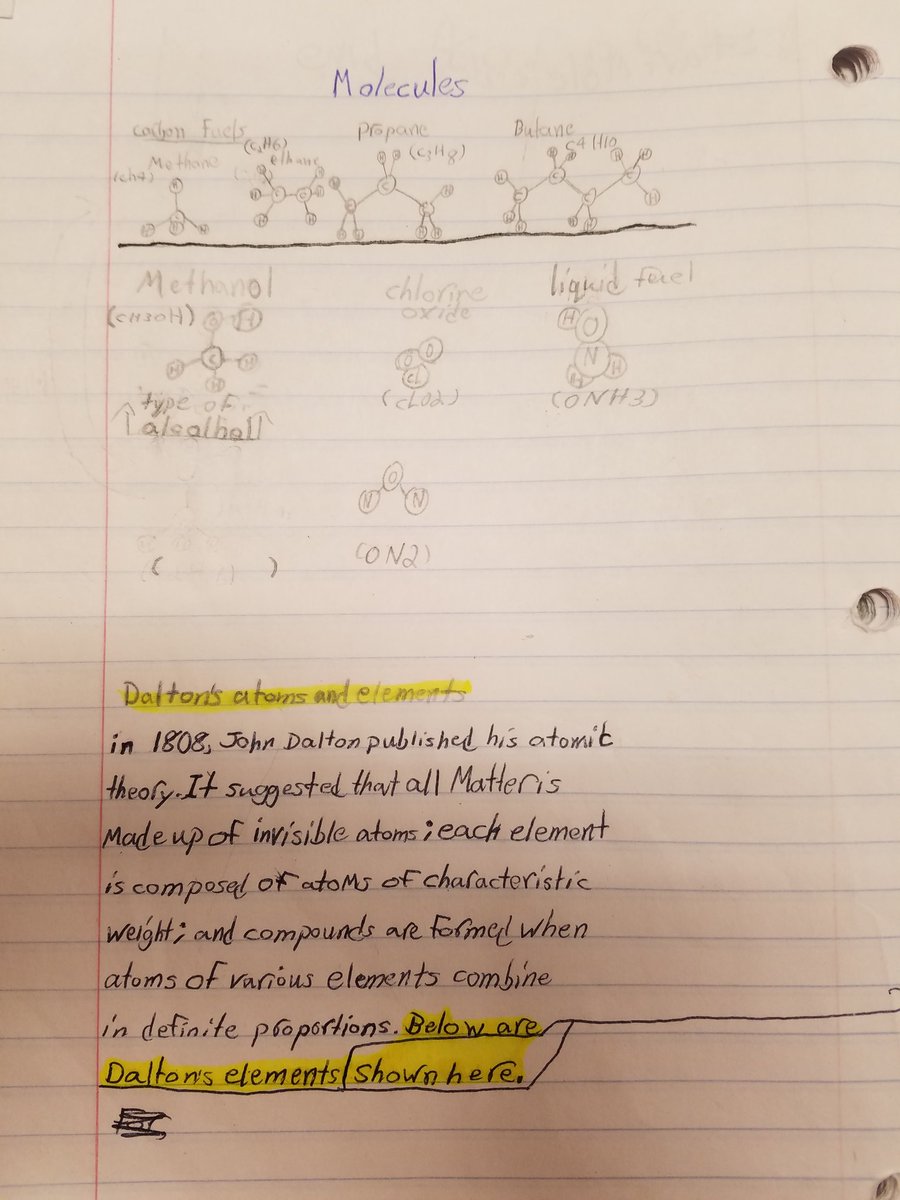 Molecules
carbon Fuels
Propane
Butane
(C2H6)
(C3H8)
Methane
ethane
(CH4)
Methanol
chlorine
oxide
liquid fuel
(CH3OH)
O H
H O
H C H
O O
N
H
CL
H H
type of
(CLO2)
(ONH3)
alcalhall
O
N N
(ON2)
( )
Dalton's atoms and elements
in 1808, John Dalton published his atomic
theory. It suggested that all Matter is
Made up of invisible atoms; each element
is composed of atoMs of characteristic
weight; and compounds are formed when
atoms of various elements combine
in definite proportions. Below are
Dalton's elements Shown here.